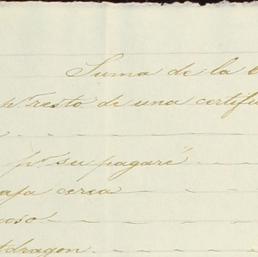 Suma de la
pr. resto de una certifi
pr. su pagaré
cerea
coso
tdragon